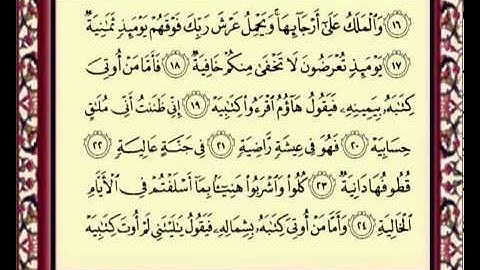 ١٦ وَالْمَلَكُ عَلَىٰ أَرْجَائِهَا ۚ وَيَحْمِلُ عَرْشَ رَبِّكَ فَوْقَهُمْ يَوْمَئِذٍ ثَمَانِيَةٌ
١٧ يَوْمَئِذٍ تُعْرَضُونَ لَا تَخْفَىٰ مِنكُمْ خَافِيَةٌ ١٨ فَأَمَّا مَنْ أُوتِيَ
كِتَابَهُ بِيَمِينِهِ فَيَقُولُ هَاؤُمُ اقْرَءُوا كِتَابِيَهْ ١٩ إِنِّي ظَنَنتُ أَنِّي مُلَاقٍ
حِسَابِيَهْ ٢٠ فَهُوَ فِي عِيشَةٍ رَّاضِيَةٍ ٢١ فِي جَنَّةٍ عَالِيَةٍ ٢٢
قُطُوفُهَا دَانِيَةٌ ٢٣ كُلُوا وَاشْرَبُوا هَنِيئًا بِمَا أَسْلَفْتُمْ فِي الْأَيَّامِ
الْخَالِيَةِ ٢٤ وَأَمَّا مَنْ أُوتِيَ كِتَابَهُ بِشِمَالِهِ فَيَقُولُ يَا لَيْتَنِي لَمْ أُوتَ كِتَابِيَهْ